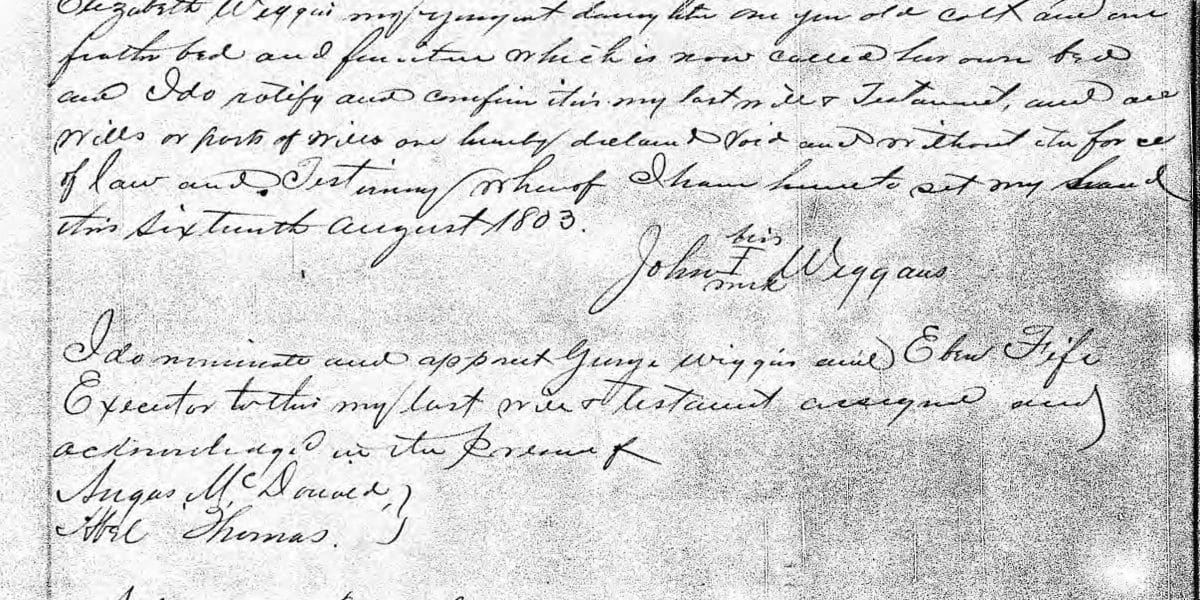 Elizabeth Wiggins my youngest daughter one year old colt and one
feather bed and furniture which is now called her own bed
and I do ratify and confirm this my last will & Testament, and all
wills or parts of wills are hereby declared Void and without the force
of law and. Testimony whereof I have hereto set my hand
this sixteenth August 1803.
his
John I Wiggans
mark
I do nominate and appoint George Wiggins and Eben Fife
Executor to this my last will & Testament assigned and
acknowledged in the presence of
Angus McDonald,
Abel Thomas.